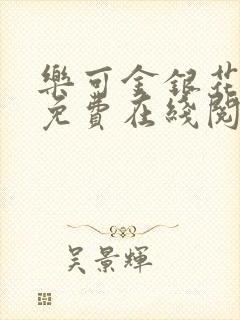 樂可金銀花
免費在綫閱
吳景輝